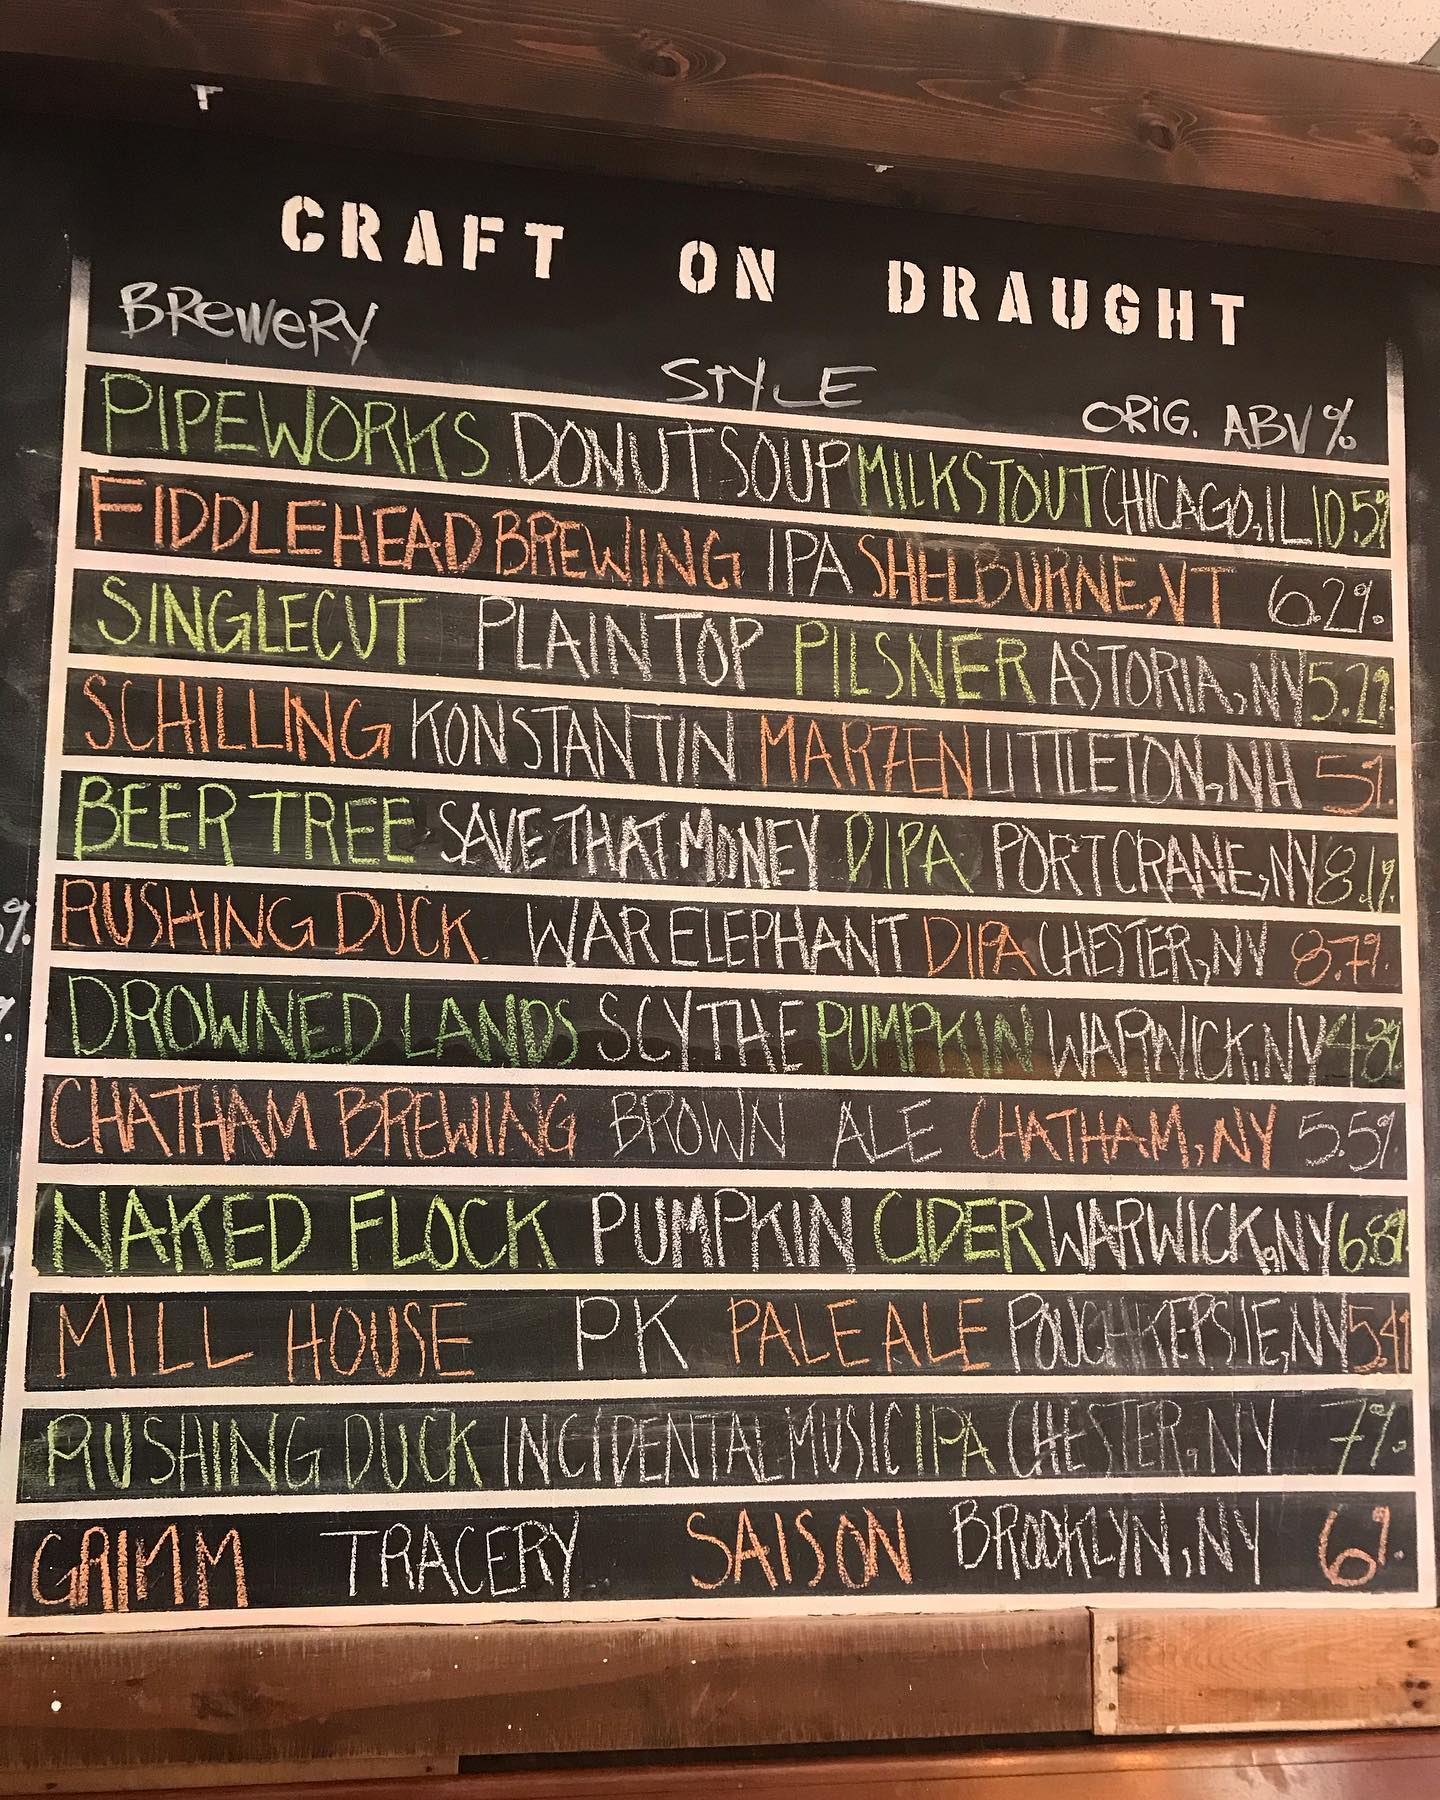 CRAFT ON DRAUGHT
BREWERY STYLE ORIG. ABV%
PIPEWORKS DONUT SOUP MILK STOUT CHICAGO, IL 10.5%
FIDDLEHEAD BREWING IPA SHELBURNE, VT 6.2%.
SINGLECUT PLAIN TOP PILSNER ASTORIA, NY 5.2%.
SCHILLING KONSTANTIN MARZEN LITTLETON, NH 5%.
BEER TREE SAVE THAT MONEY DIPA PORT CRANE, NY 8.1%
RUSHING DUCK WAR ELEPHANT DIPA CHESTER, NY 8.7%.
DROWNED LANDS SCYTHE PUMPKIN WARWICK, NY 4.8%
CHATHAM BREWING BROWN ALE CHATHAM, NY 5.5%.
NAKED FLOCK PUMPKIN CIDER WARWICK, NY 6.8%
MILL HOUSE PK PALE ALE POUGHKEPSIE, NY 5.4%
RUSHING DUCK INCIDENTAL MUSIC IPA CHESTER, NY 7%.
GRIMM TRACERY SAISON BROOKLYN, NY 6%.